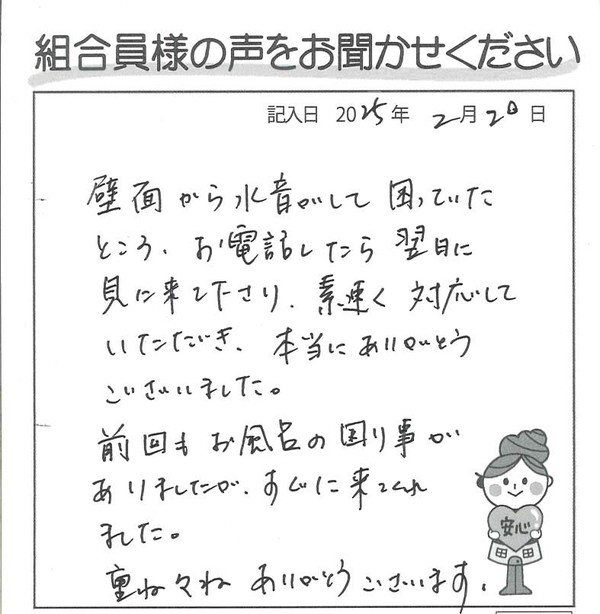 組合員様の声をお聞かせください
記入日 2025年 2月 20日
壁面から水音がして困っていた
ところ、お電話したら翌日に
見に来て下さり、素速く対応して
いただき、本当にありがとう
ございました。
前回もお風呂の困り事が
ありましたが、すぐに来てくれ
ました。
重ね々ね ありがとうございます。
安心